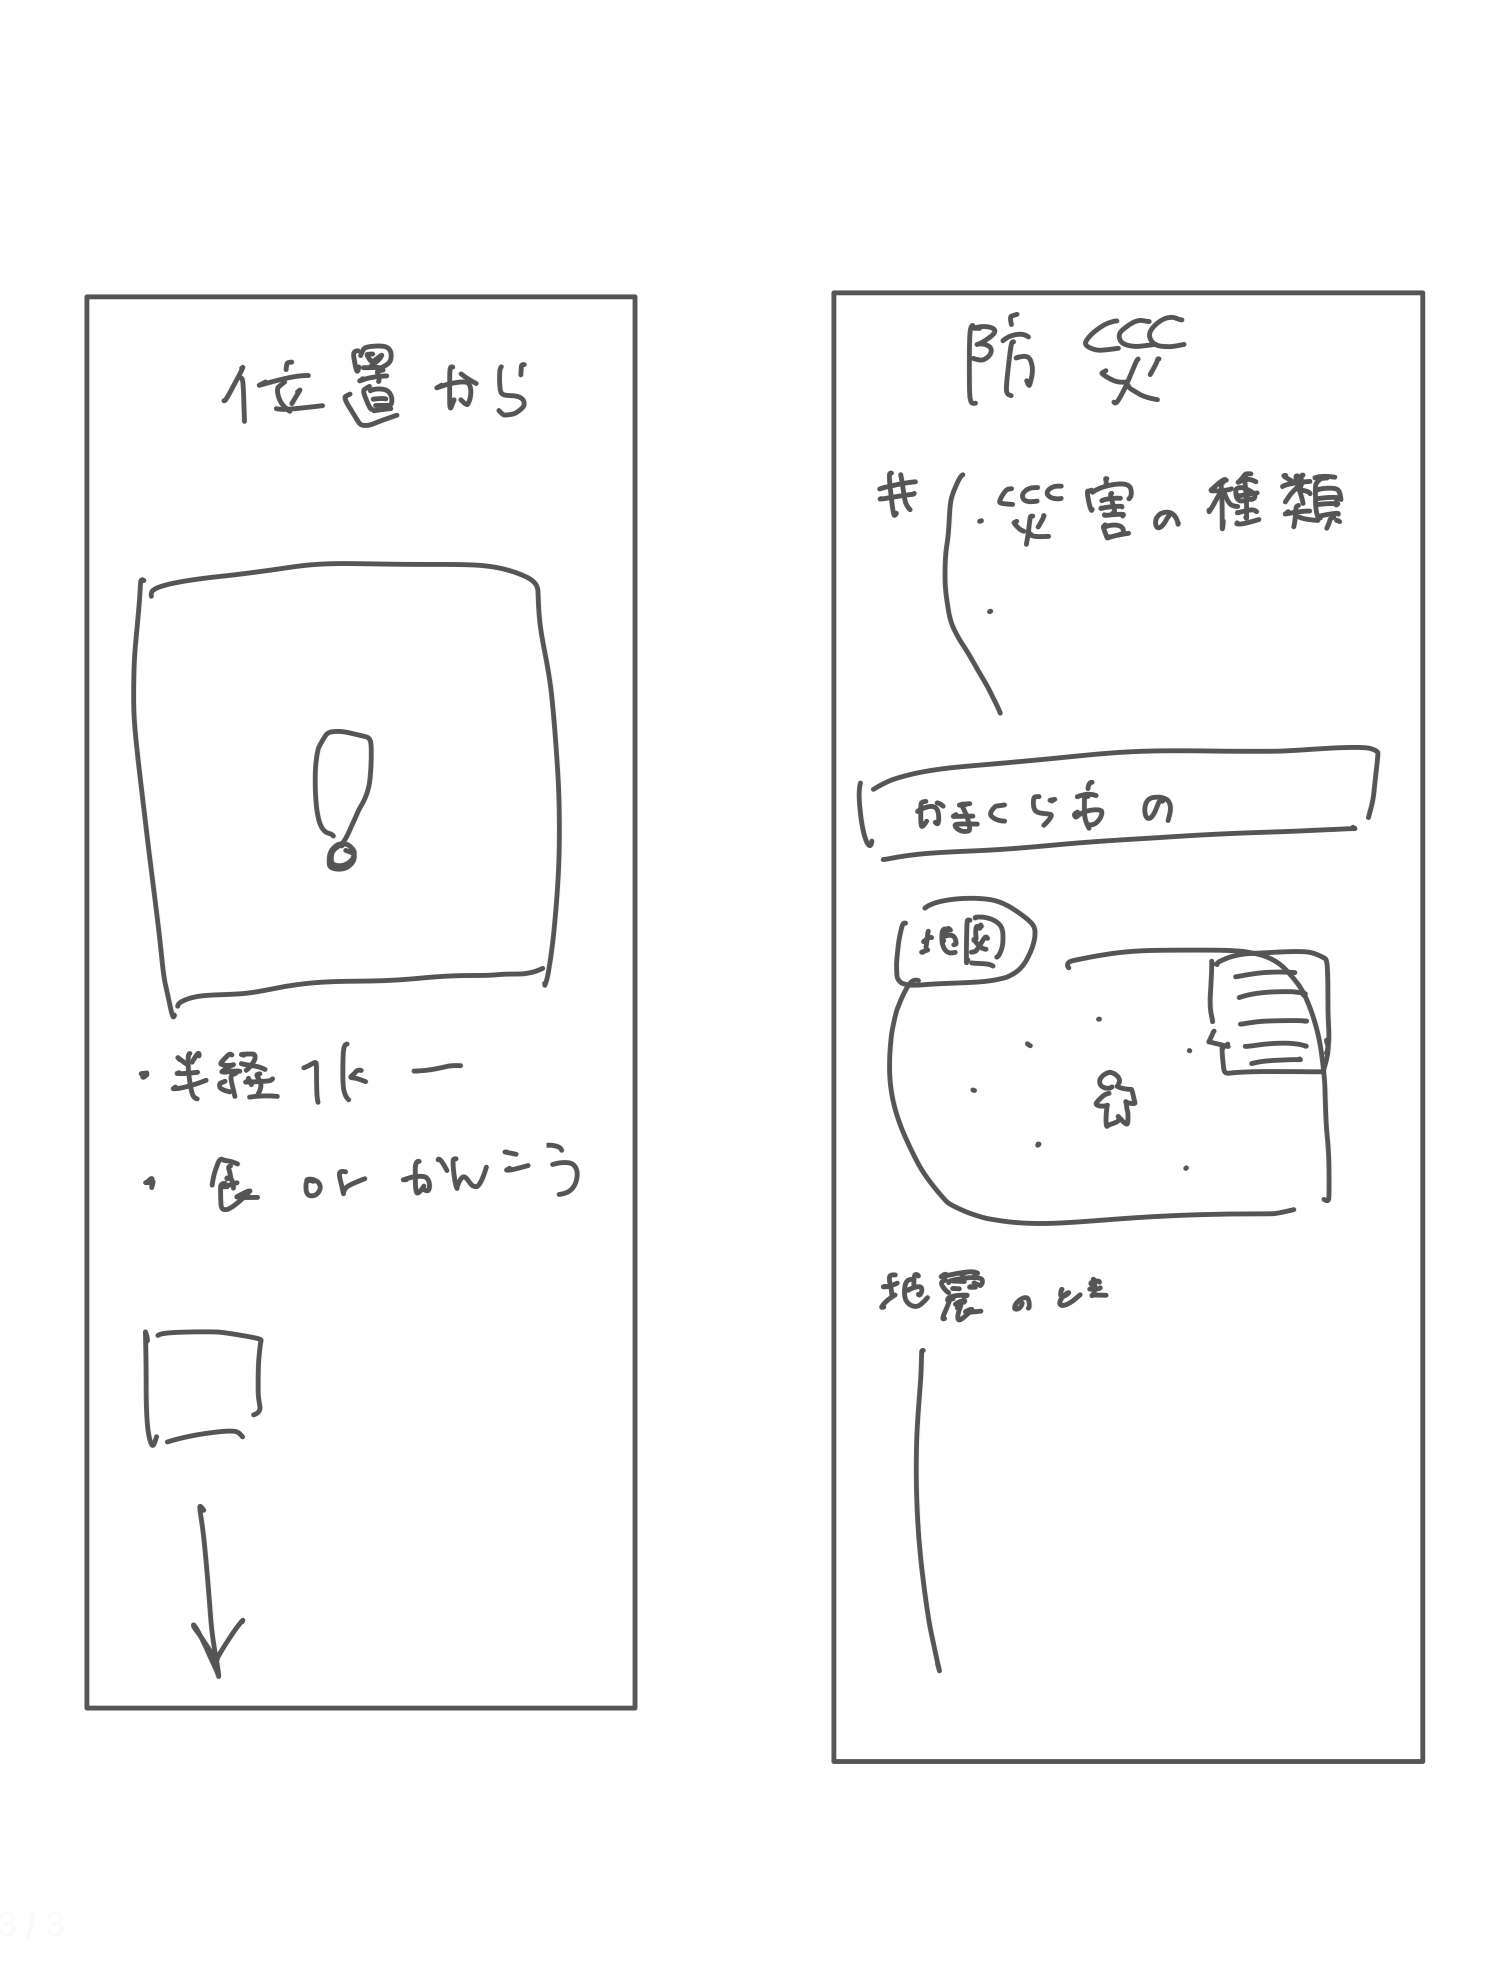 位置から
・半経1k ー
・食 or かんこう
防災
# ・災害の種類
・
かまくら市の
地図
地震のとき
3/3